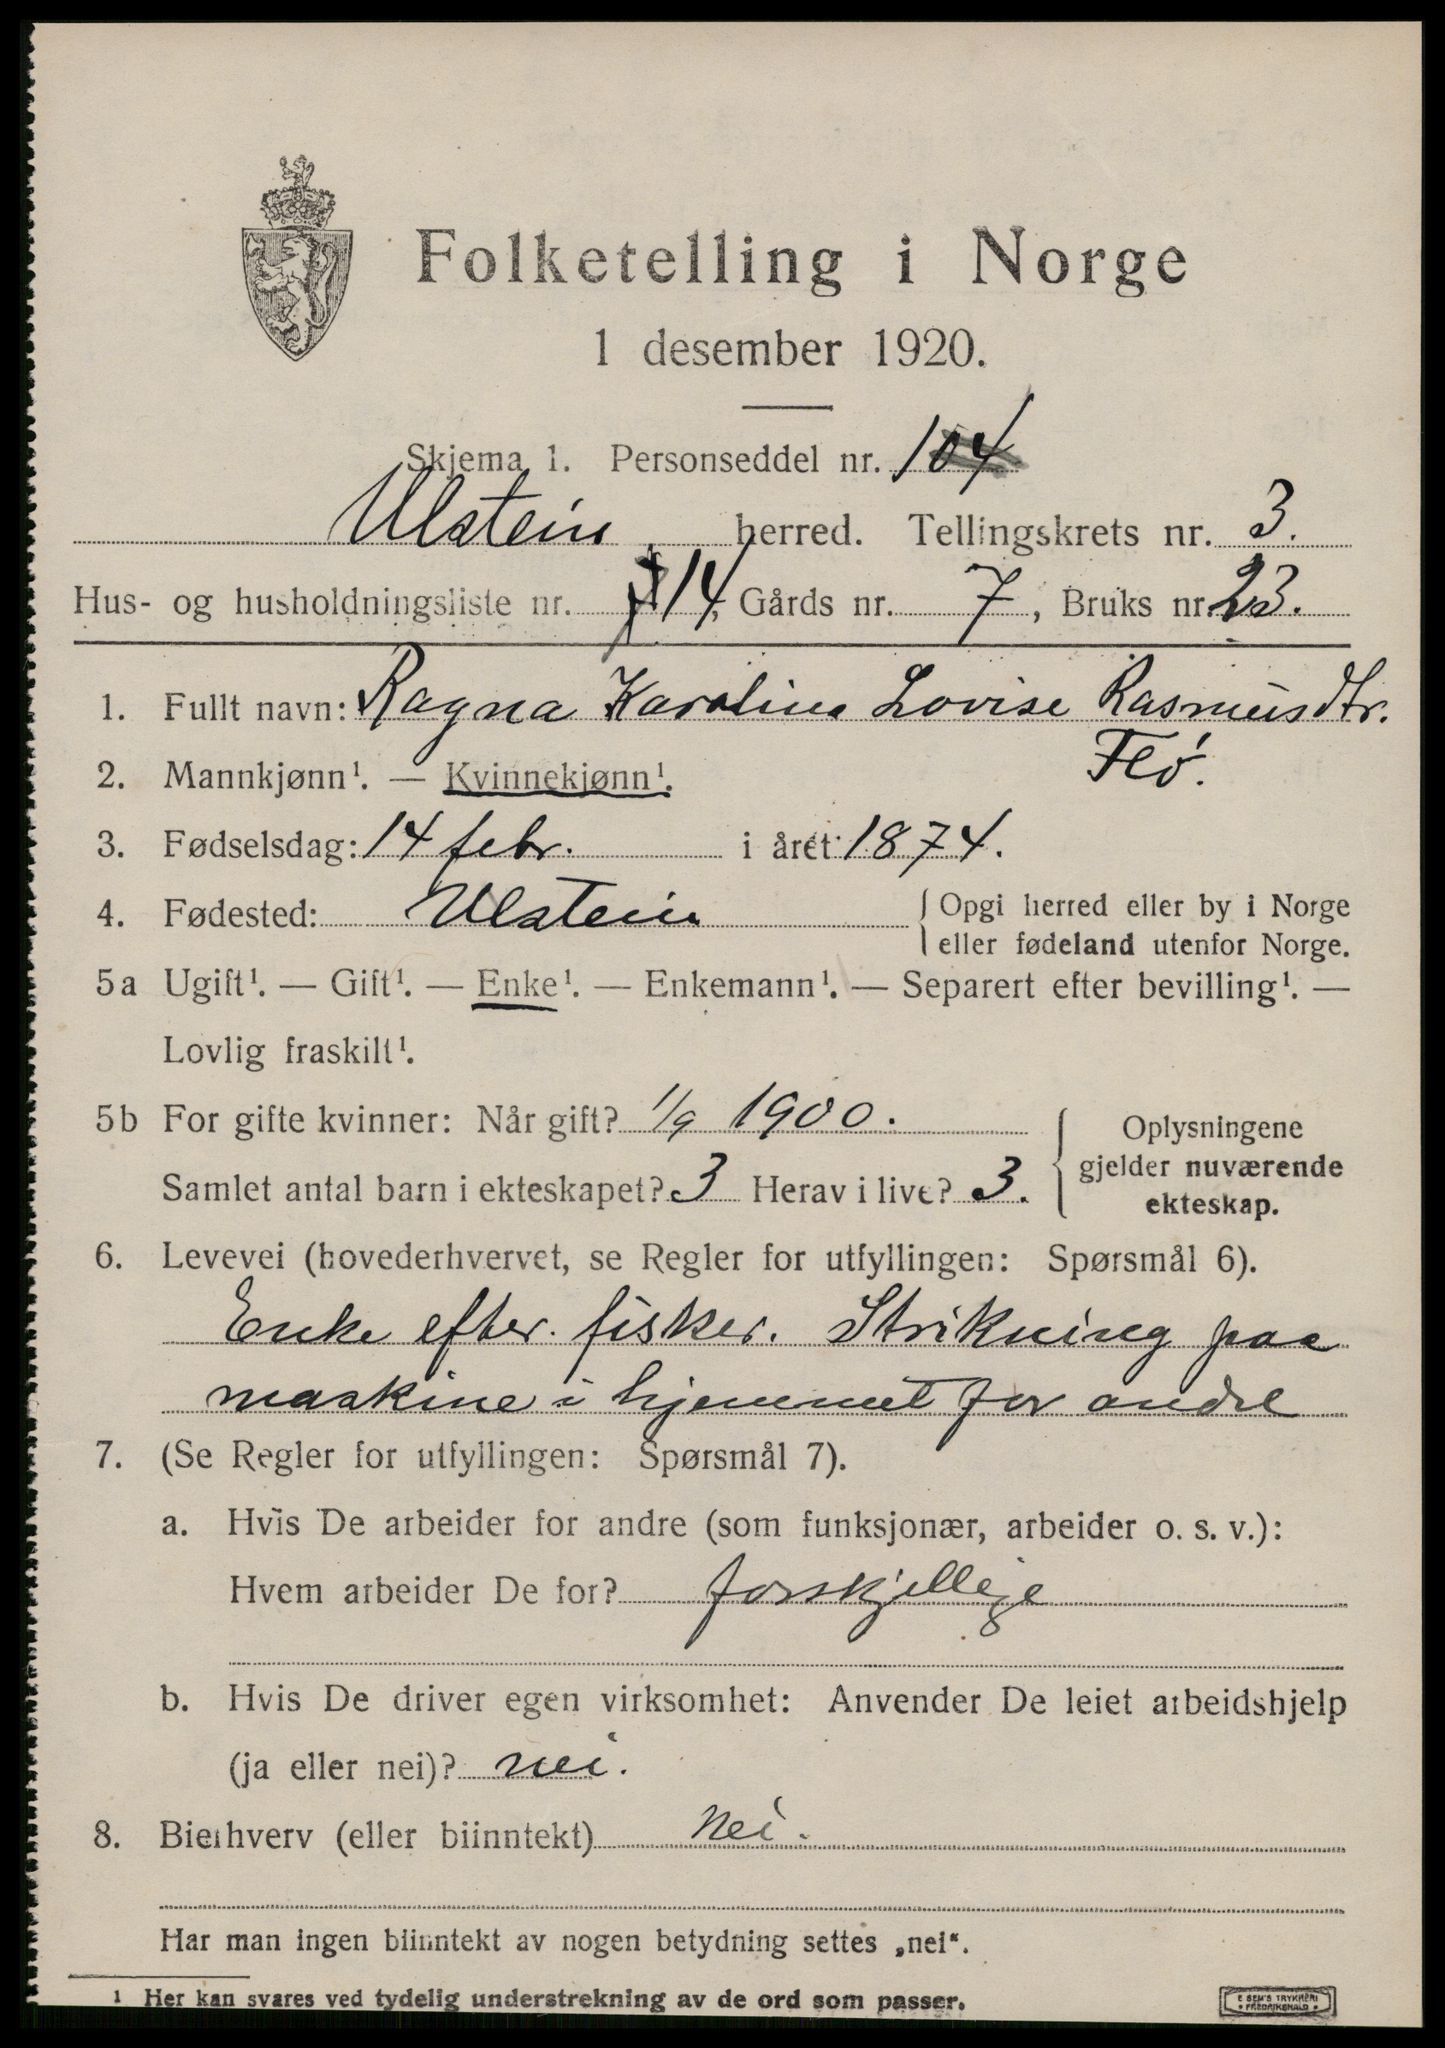 Folketelling i Norge
1 desember 1920.
Skjema 1. Personseddel nr. 104
Ulstein herred. Tellingskrets nr. 3.
Hus- og husholdningsliste nr. 14, Gårds nr. 7, Bruks nr. 23.
1. Fullt navn: Ragna Karoline Lovise Rasmusdtr.
Flø.
2. Mannkjønn¹. — Kvinnekjønn¹.
3. Fødselsdag: 14 febr. i året 1874.
4. Fødested: Ulstein { Opgi herred eller by i Norge
eller fødeland utenfor Norge.
5a Ugift¹. — Gift¹. — Enke¹. — Enkemann¹. — Separert efter bevilling¹. —
Lovlig fraskilt¹.
5b For gifte kvinner: Når gift? 1/9 1900.
Samlet antal barn i ekteskapet? 3 Herav i live? 3.
{ Oplysningene
gjelder nuværende
ekteskap.
6. Levevei (hovederhvervet, se Regler for utfyllingen: Spørsmål 6).
Enke efter fisker. Strikning paa
maskine i hjemmet for andre
7. (Se Regler for utfyllingen: Spørsmål 7).
a. Hvis De arbeider for andre (som funksjonær, arbeider o. s. v.):
Hvem arbeider De for? forskjellige
b. Hvis De driver egen virksomhet: Anvender De leiet arbeidshjelp
(ja eller nei)? nei.
8. Bierhverv (eller biinntekt) Nei.
Har man ingen biinntekt av nogen betydning settes „nei“.
¹ Her kan svares ved tydelig understrekning av de ord som passer.
E SEM'S TRYKKERI
• FREDRIKSHALD •